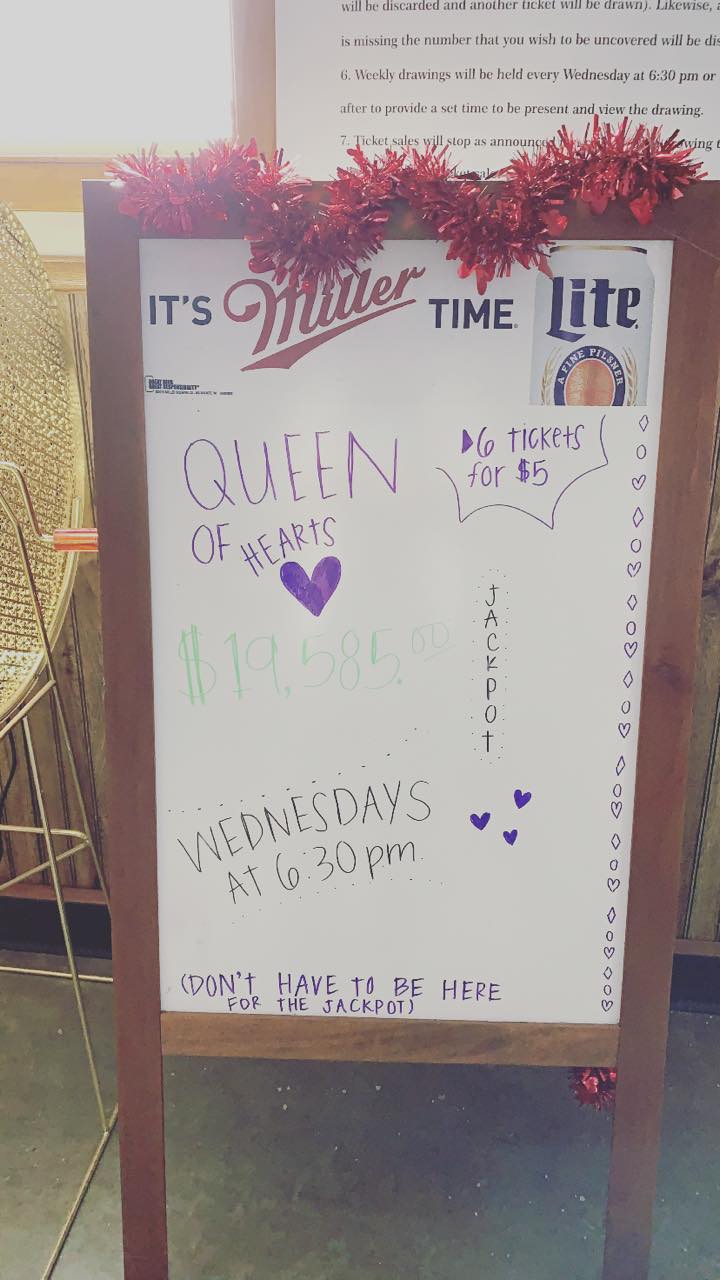 will be discarded and another ticket will be drawn). Likewise,
is missing the number that you wish to be uncovered will be
6. Weekly drawings will be held every Wednesday at 6:30 pm or
after to provide a set time to be present and view the drawing.
7. Ticket sales will stop as announced
IT'S Miller TIME.
Lite
A FINE PILSNER
GREAT BEER
GREAT RESPONSIBILITY
QUEEN
OF HEARTS
6 tickets
for $5
$19,585.00
JACKPOT
WEDNESDAYS
At 6:30 pm.
(DON'T HAVE TO BE HERE
FOR THE JACKPOT)